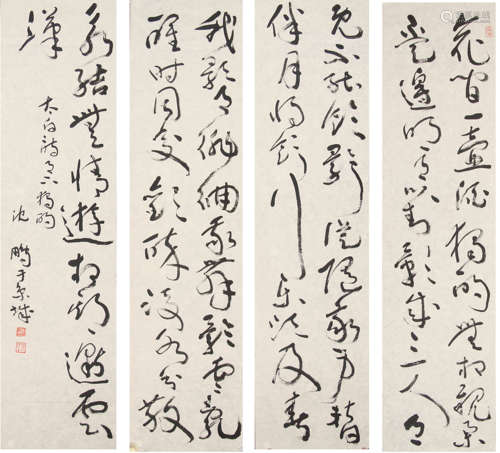 花間一壺酒獨酌無相親舉
盃邀明月對影成三人月
既不解飲影徒隨我身暫
伴月將影行樂須及春
我歌月徘徊我舞影零亂
醒時同交歡醉後各分散
永結無情遊相期邈雲
漢
太白詩月下獨酌
沈鵬于京城